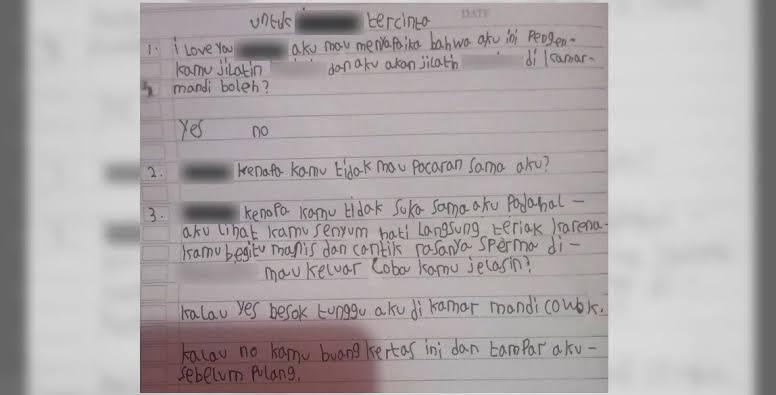 untuk tercinta
DATE
1. i Love You aku mau menyapaika bahwa aku ini Pengen-
kamu jilatin dan aku akan jilatin di kamar-
mandi boleh?
Yes no
2. kenapa kamu tidak mau Pacaran sama aku?
3. kenapa kamu tidak suka sama aku Padahal -
aku Lihat kamu senyum hati Langsung teriak karena-
kamu begitu manis dan cantik rasanya sperma di-
mau keluar Coba kamu jelasin?
kalau yes besok tunggu aku di kamar mandi cowok.
kalau no kamu buang kertas ini dan tampar aku-
sebelum Pulang.